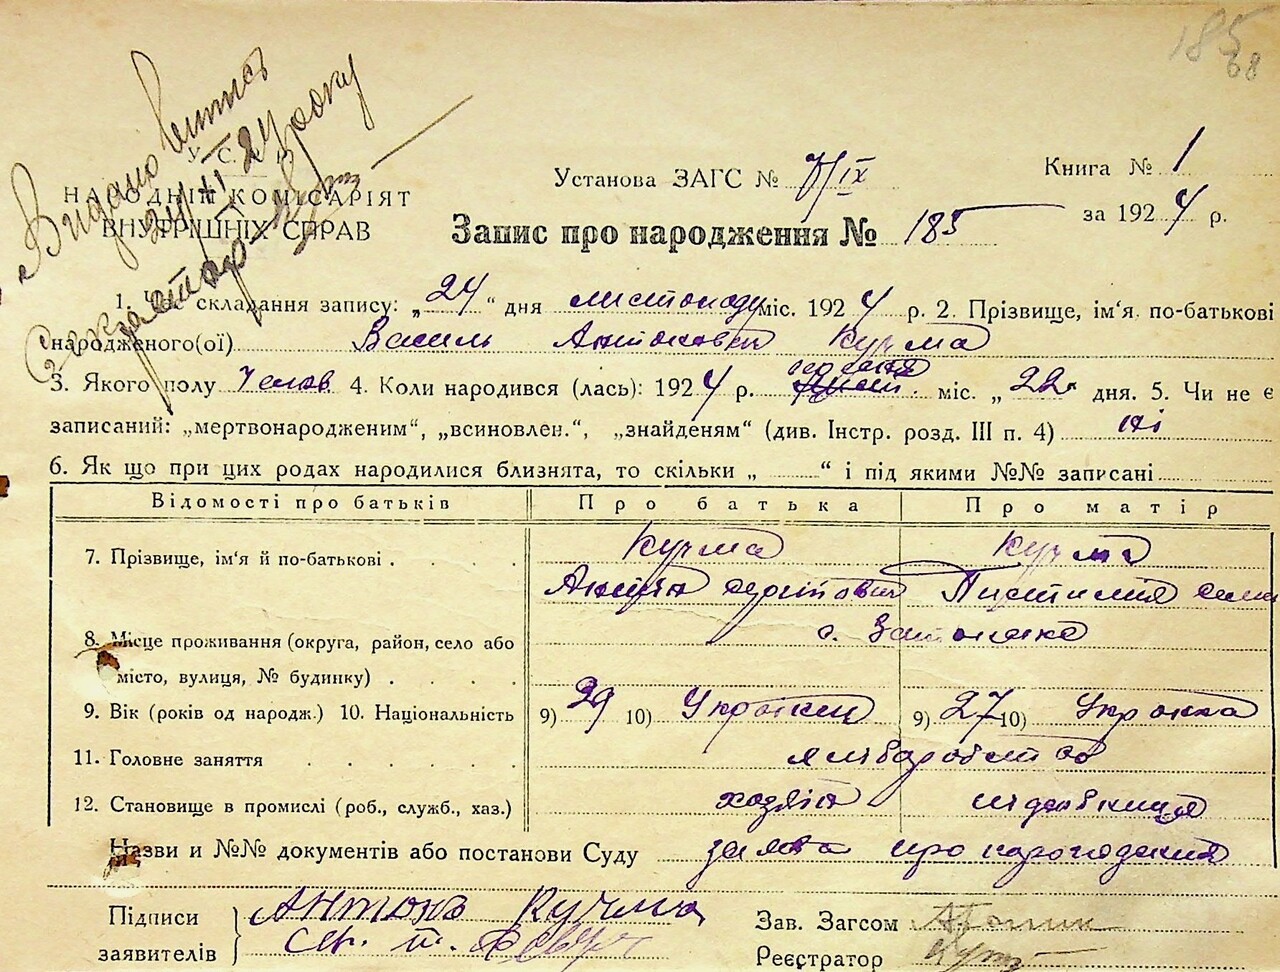 185
68
Видано витяг
24/XI 24 року
У. С.
НАРОДНІЙ КОМІСАРІЯТ
ВНУТРІШНІХ СПРАВ
Установа ЗАГС № 7/IX
Книга № 1
за 1924 р.
Запис про народження № 185
1. складання запису: „24“ дня листопаду міс. 1924 р. 2. Прізвище, ім'я по-батькові
народженого(ої) Василь Антонович Кучма
3. Якого полу Челов 4. Коли народився (лась): 1924 р. міс. „22“ дня. 5. Чи не є
записаний: „мертвонародженим“, „всиновлен.“, „знайденям“ (див. Інстр. розд. III п. 4) ні
6. Як що при цих родах народилися близнята, то скільки „ “ і під якими №№ записані
Відомості про батьків Про батька Про матір
7. Прізвище, ім'я й по-батькові . . . Кучма Кучма
Антін Сергійович
8. Місце проживання (округа, район, село або
с.
місто, вулиця, № будинку) . . . .
9. Вік (років од народж.) 10. Національність 9) 29 10) Українец 9) 27 10) Українка
11. Головне заняття . . . . . хліборобство
12. Становище в промислі (роб., служб., хаз.) хазяїн
Назви и №№ документів або постанови Суду заява про народження
Підписи Антонъ Кучма
заявителів
Зав. Загсом
Реєстратор